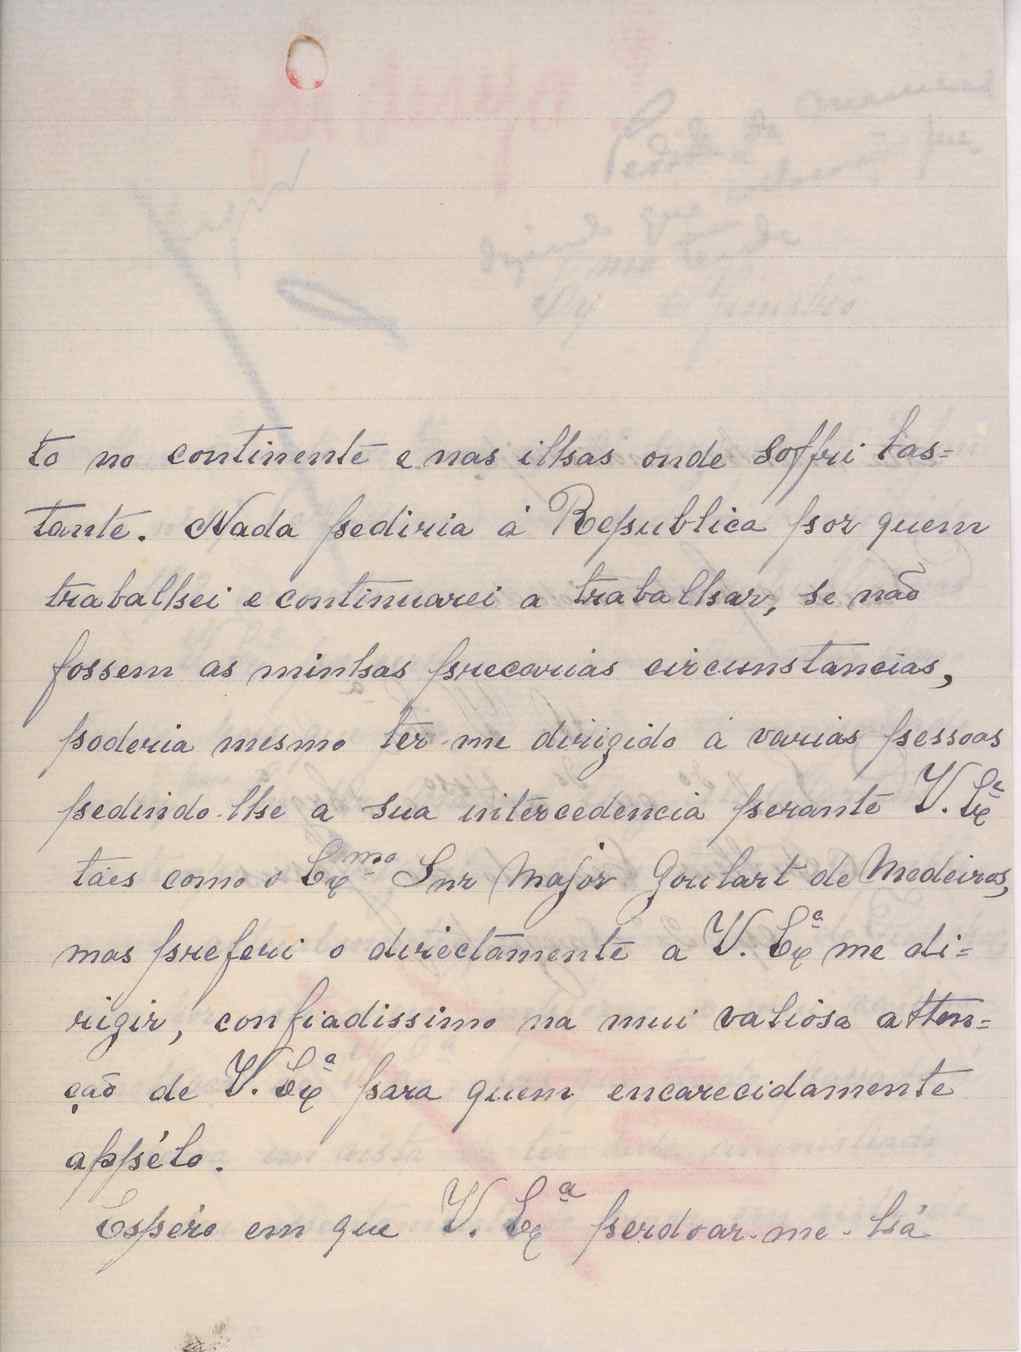 to no continente e nas ilhas onde soffri bas=
tante. Nada pediria á Republica por quem
trabalhei e continuarei a trabalhar, se não
fossem as minhas precarias circunstancias,
poderia mesmo ter-me dirigido á varias pessoas
pedindo-lhe a sua intercedencia perante V. Exª
táes como o Exmo Snr Major Goulart de Medeiros,
mas preferi o directamente a V. Exª me di=
rigir, confiadissimo na mui valiosa atten=
ção de V. Exª para quem encarecidamente
appélo.
Espéro em que V. Exª perdoar-me-há